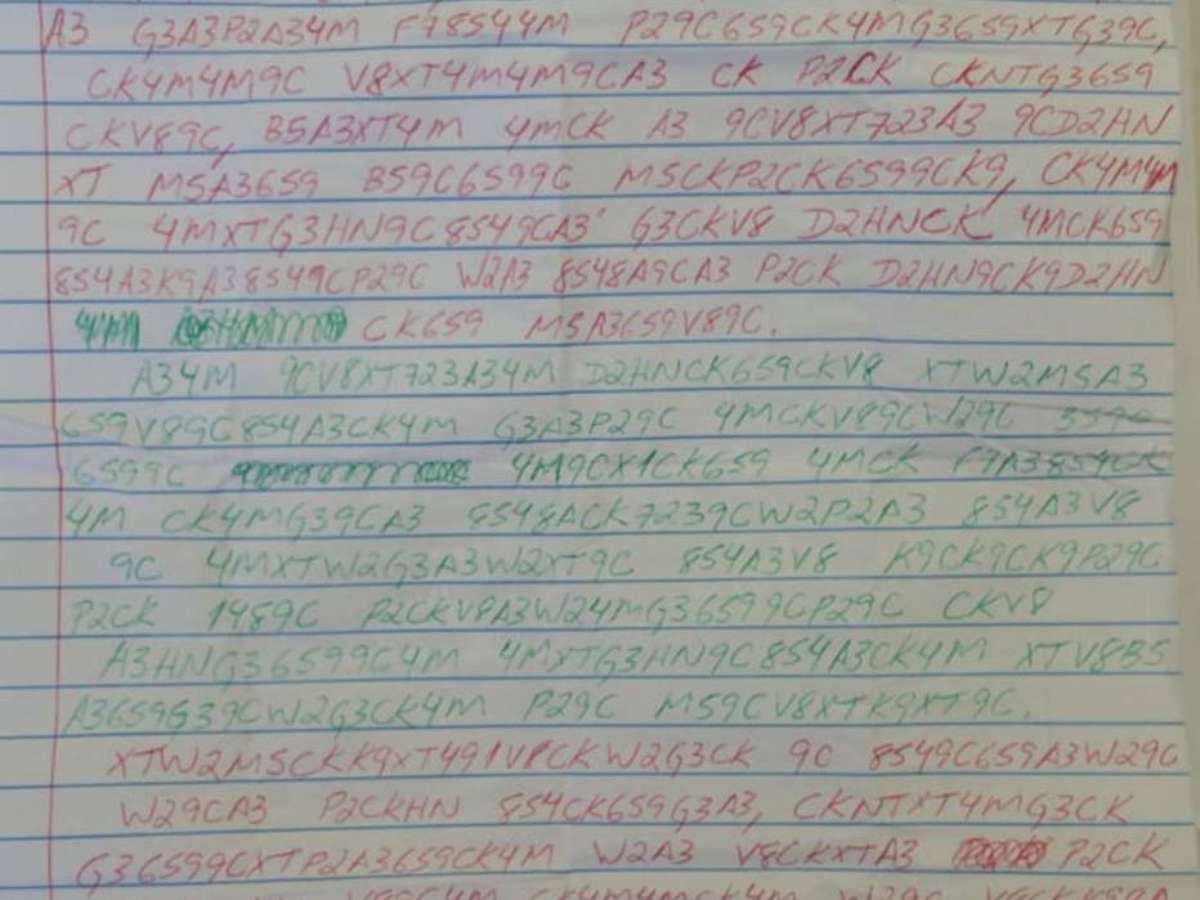 A3 G3A3P2A34M F78544M P29C659CK4MG3659XTG39C,
CK4M4M9C V8XT4M4M9CA3 CK P2CK CKNTG3659
CKV89C, B5A3XT4M 4MCK A3 9CV8XT723A3 9CD2HN
XT M5A3659 B59C6599C M5CKP2CK6599CK9, CK4M4M
9C 4MXTG3HN9C8549CA3 G3CKV8 D2HNCK 4MCK659
854A3K9A38549CP29C W2A3 8548A9CA3 P2CK D2HN9CK9D2HN
CK659 M5A3659V89C.
A34M 9CV8XT723A34M D2HNCK659CKV8 XTW2M5A3
659V89C854A3CK4M G3A3P29C 4MCKV89CW29C
6599C 4M9CXTCK659 4MCK F7A3854CK
4M CK4MG39CA3 8548ACK7239CW2P2A3 854A3V8
9C 4MXTW2G3A3W2XT9C 854A3V8 K9CK9CK9P29C
P2CK 1489C P2CKV8A3W24MG36599CP29C CKV8
A3HNG36599C4M 4MXTG3HN9C854A3CK4M XTV8B5
A3659G39CW2G3CK4M P29C M59CV8XTK9XT9C.
XTW2M5CKK9XT491V8CKW2G3CK 9C 8549C659A3W29C
W29CA3 P2CKHN 854CK659G3A3, CKNTXT4MG3CK
G36599CXTP2A3659CK4M W2A3 V8CKXTA3 P2CK